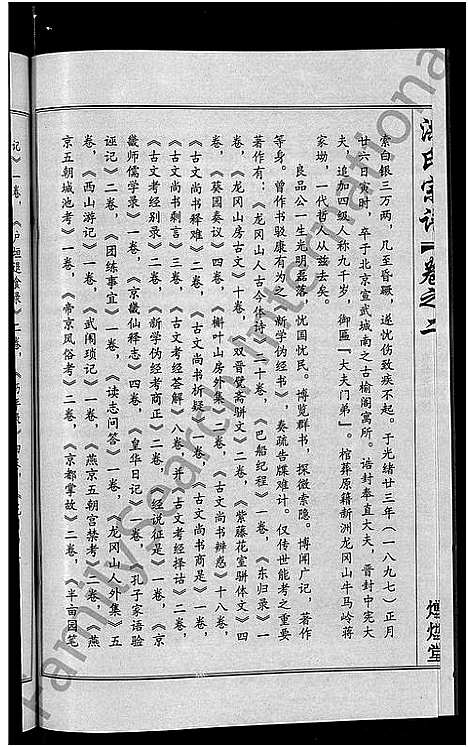 洪氏宗谱
卷之二
煌煌堂
索白银三万两，几至昏瞓，遂忧伤致疾不起。于光绪廿三年（一八九七）正月
廿六日亥时，卒于北京宣武城南之古榆阁寓所。诰封奉直大夫，晋封中宪大
夫，追加四级人称九千岁，御匾『大夫门弟』。棺葬原籍新洲龙冈山牛马岭蒋
家坳，一代哲人从兹去矣。
良品公一生光明磊落，忧国忧民。博览群书，探微索隐。博闻广记，著作
等身。曾作书驳康有为之《新学伪经书》，奏疏告牒难计。仅传世能考之重要
著作有：《龙冈山人古今体诗》二十卷，《巴船纪程》一卷，《东归录》一
卷，《龙冈山房古文》十卷，《双晋甓斋骈文》二卷，《紫藤花室骈体文》四
卷，《葵园奏议》四卷，《槲叶山房外集》二卷，《古文尚书辨惑》十八卷，
《古文尚书释难》二卷，《古文尚书析疑》一卷，《古文尚书商是》一卷，
《古文尚书剩言》三卷，《古文考经荟解》八卷，并《古文考经择诂》二卷，
《古文考经别录》二卷，《新学伪经考商正》二卷，《经说征是》一卷，《京
畿师儒学录》一卷，《京畿仙释志》四卷，《皇华日记》一卷，《孔子家语验
诬记》二卷，《团练事宜》一卷，《读志问答》一卷，《龙冈山人外集》五
卷，《西山游记》一卷，《武闱琐记》一卷，《燕京五朝宫禁考》二卷，《燕
京五朝城池考》一卷，《帝京风俗考》二卷，《京都掌故》二卷，《半亩园笔
FamilySearch International